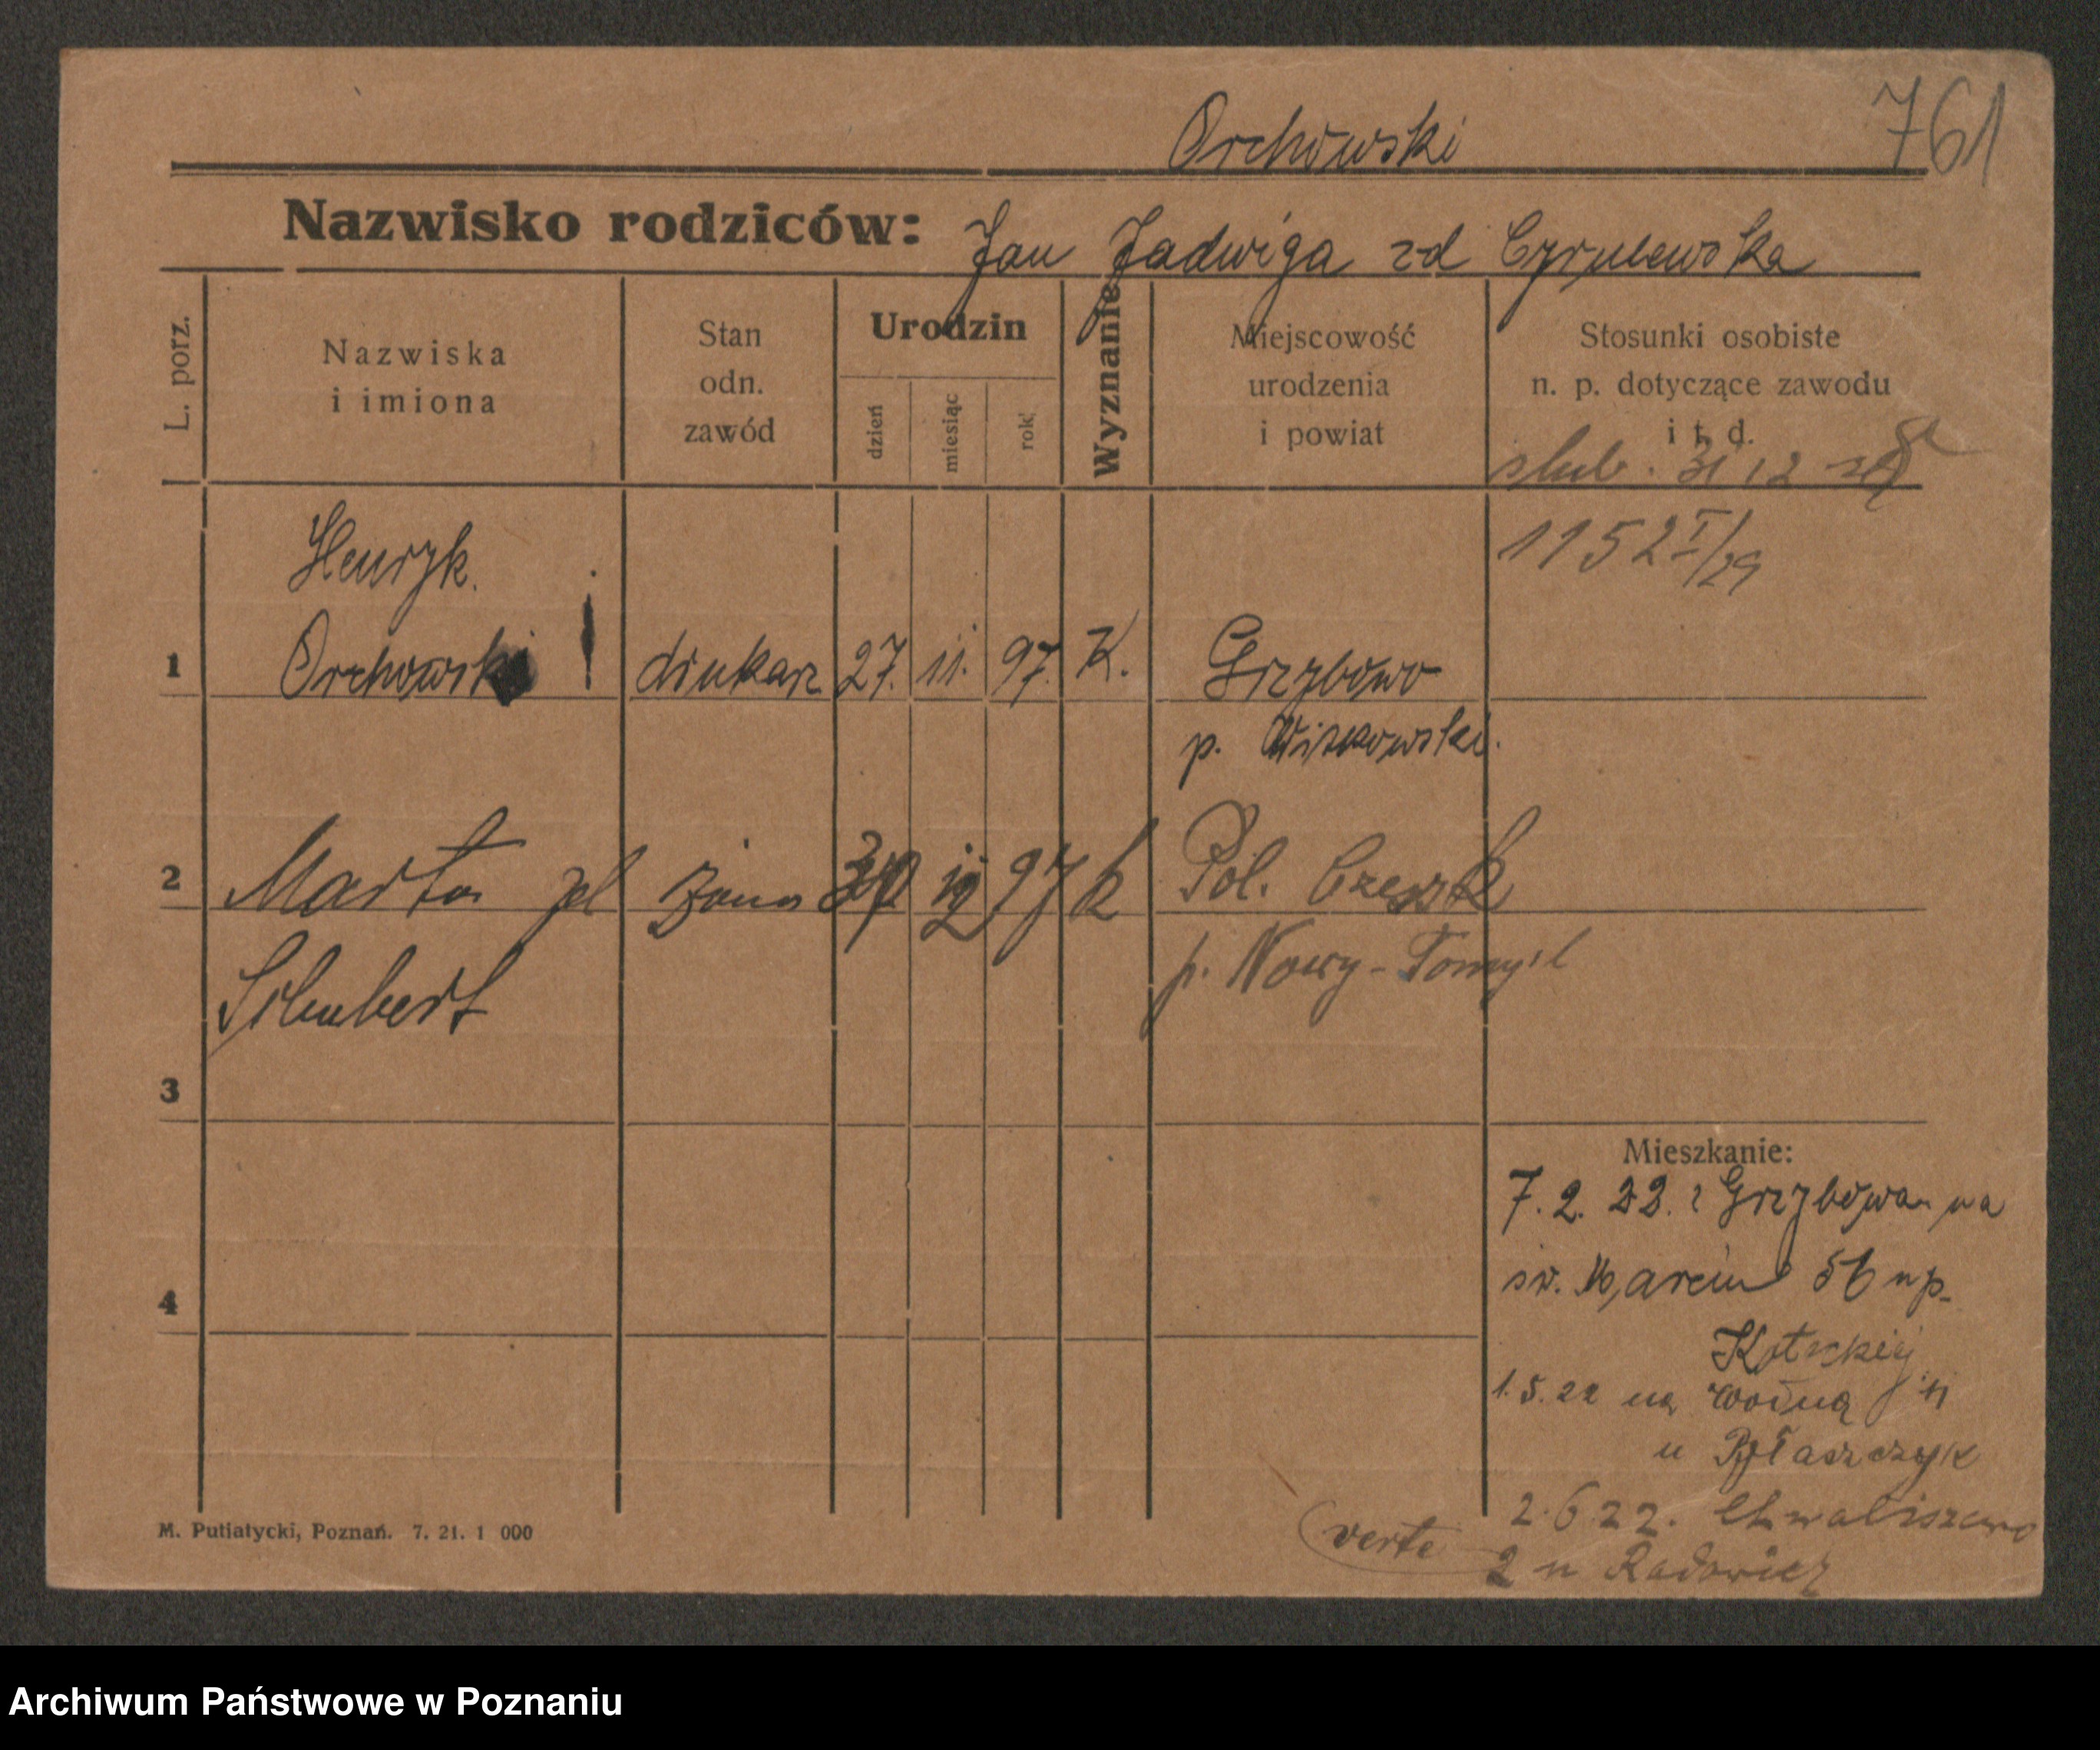 Orchowski
761
Nazwisko rodziców: Jan Jadwiga zd
L. porz.
Nazwiska i imiona
Stan odn. zawód
Urodzin
dzień
miesiąc
rok
Wyznanie
Miejscowość urodzenia i powiat
Stosunki osobiste n. p. dotyczące zawodu i t. d.
slub. 31 12
1152 I/29
Henryk.
1 Orchowski drukarz 27. 11. 97. K. Grzybowo
p. Witkowski.
2 Marta zd żona 97 k Pol.
Schubert p. Nowy-Tomyśl
3
Mieszkanie:
7. 2. 22. z Grzybowa na
św. Marcin 56 u p.
4
1. 5. 22 na Wodną 11
u
2. 6. 22. Chwaliszewo
verte 2 u Radowicz
M. Putiatycki, Poznań. 7. 21. 1 000
Archiwum Państwowe w Poznaniu